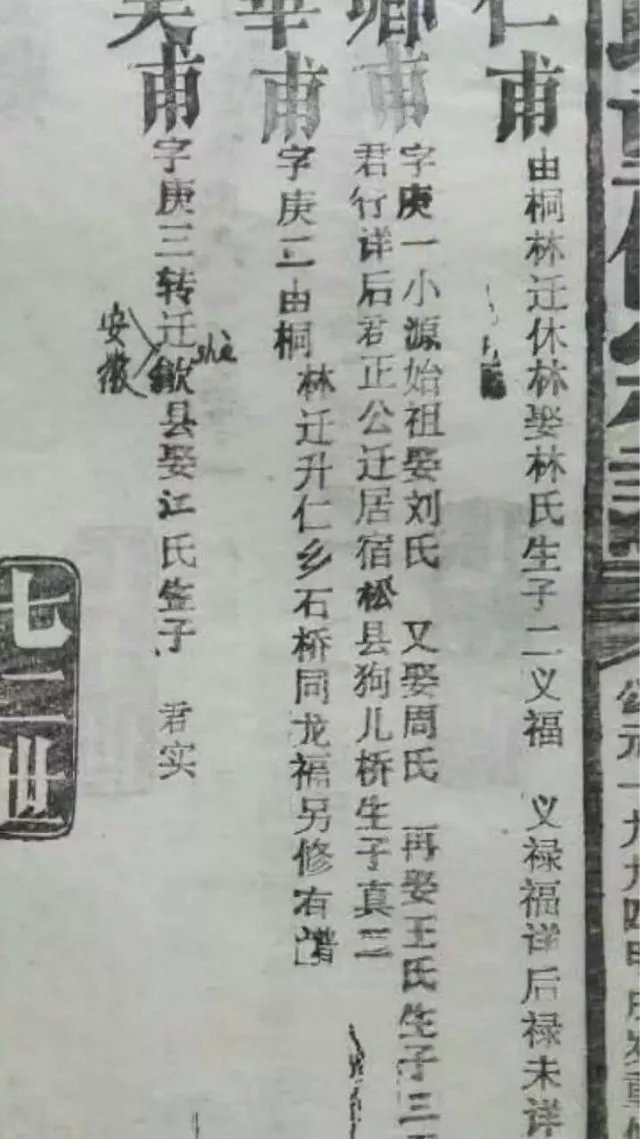 公元一九九四
仁甫
由桐林迁休林娶林氏生子二义福 义禄福详后禄未详
卿甫
字庚一小源始祖娶刘氏 又娶周氏 再娶王氏生子三
君行详后君正公迁居宿松县狗儿桥生子真三
華甫
字庚二由桐
林迁升仁乡石桥同龙福另修有谱
美甫
字庚三转迁歙县娶江氏生子 君实
shè
安徽
七二世